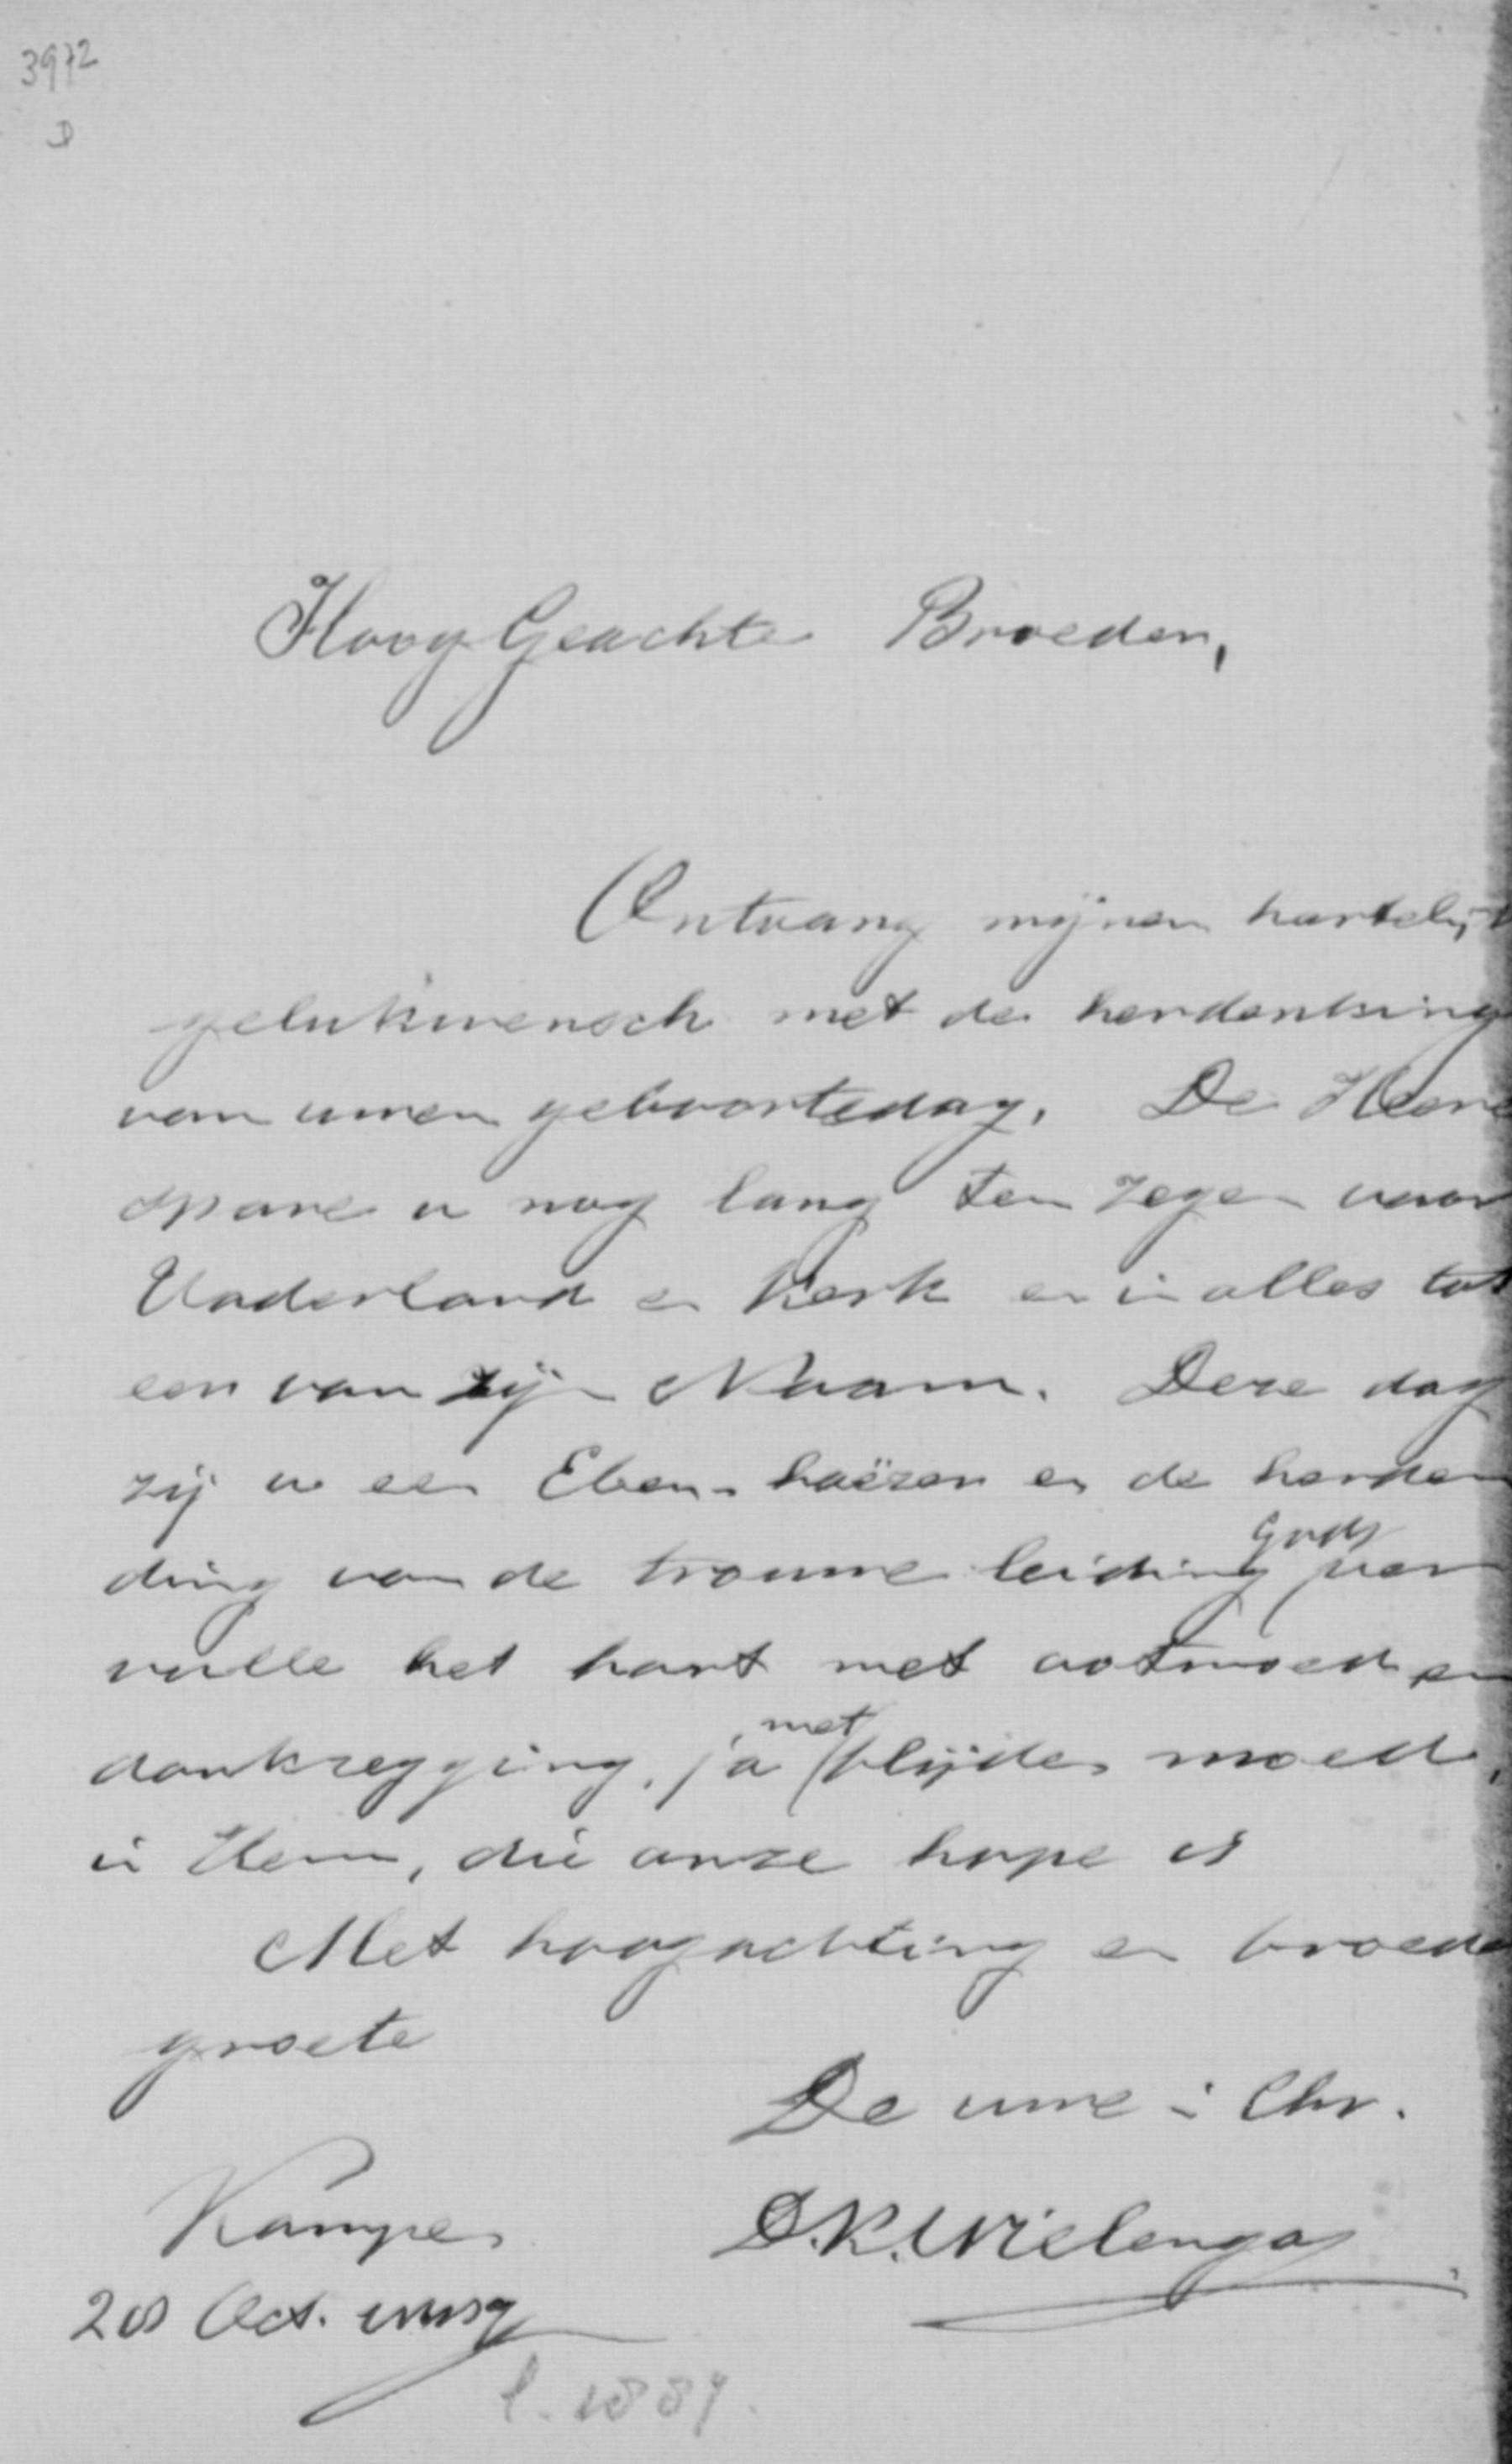 3972
D
HoogGeachte Broeder,
Ontvang mijnen hartelijk
gelukwensch met de herdenking
van uwen geboortedag. De Heere
spare u nog lang ten zegen voor
Vaderland en Kerk en in alles tot
eer van zijn Naam. Deze dag
zij u een Eben-haëzer en de herden
Gods
ding van de trouwe leiding ver
vulle het hart met ootmoed en
met
dankzegging, ja blijden moed,
in Hem, die onze hope is
Met hoogachting en broeder
groete
De uwe in Chr.
Kampen D.K. Wielenga
28 Oct.
1889.